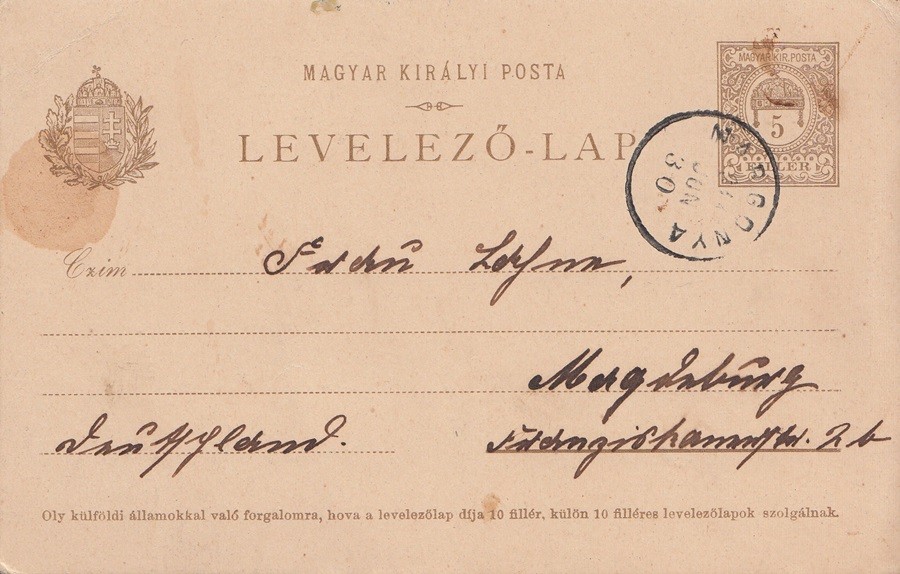 MAGYAR KIRÁLYI POSTA
MAGYAR KIR. POSTA
5
FILLÉR
LEVELEZŐ-LAP
JUN
30
Czim
Frau Lahne,
Magdeburg
Deutschland.
Franziskanerstr. 2b
Oly külföldi államokkal való forgalomra, hova a levelezőlap díja 10 fillér, külön 10 filléres levelezőlapok szolgálnak.